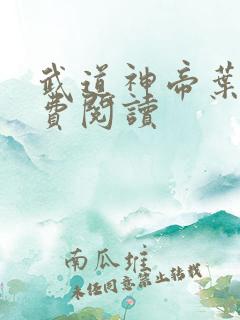 武道神帝葉
費閱讀
南瓜堆
未经同意禁止转载